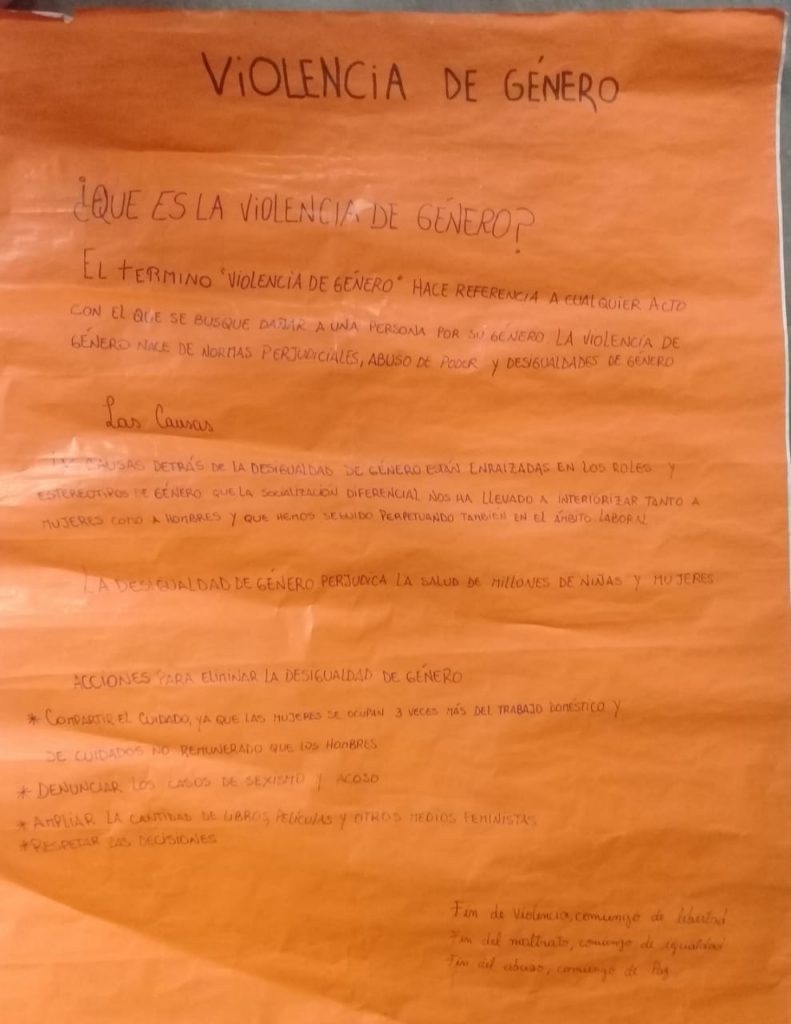 ViOLENCiA DE GÉNERO
¿QUE ES LA ViOLENCIA DE GÉNERO?
EL tERMINO "VIOLENCIA DE GÉNERO" HACE REFERENCIA A CUALQUIER ACTO
CON EL QUE SE BUSQUE DAÑAR A UNA PERSONA POR SU GÉNERO LA VIOLENCIA DE
GÉNERO NACE DE NORMAS PERJUDICIALES, ABUSO DE PODER Y DESIGUALDADES DE GÉNERO
Las Causas
CAUSAS DETRÁS DE LA DESIGUALDAD DE GÉNERO ESTÁN ENRAIZADAS EN LOS ROLES Y
ESTEREOTIPOS DE GÉNERO QUE LA SOCIALIZACIÓN DIFERENCIAL NOS HA LLEVADO A INTERIORIZAR TANTO A
MUJERES COMO A HOMBRES Y QUE HEMOS SEGUIDO PERPETUANDO TAMBIEN EN EL ÁMBITO LABORAL
LA DESIGUALDAD DE GÉNERO PERJUDICA LA SALUD DE MILLONES DE NIÑAS Y MUJERES
ACCIONES PARA ELIMINAR LA DESIGUALDAD DE GÉNERO
* COMPARTIR EL CUIDADO, YA QUE LAS MUJERES SE OCUPAN 3 VECES MÁS DEL TRABAJO DOMÉSTICO Y
DE CUIDADOS NO REMUNERADO QUE LOS HOMBRES
* DENUNCIAR LOS CASOS DE SEXISMO Y ACOSO
* AMPLIAR LA CANTIDAD DE LIBROS, PELÍCULAS Y OTROS MEDIOS FEMINISTAS
* RESPETAR LAS DECISIONES
Fin de violencia, comienzo de libertad
Fin del maltrato, comienzo de igualdad
Fin del abuso, comienzo de Paz